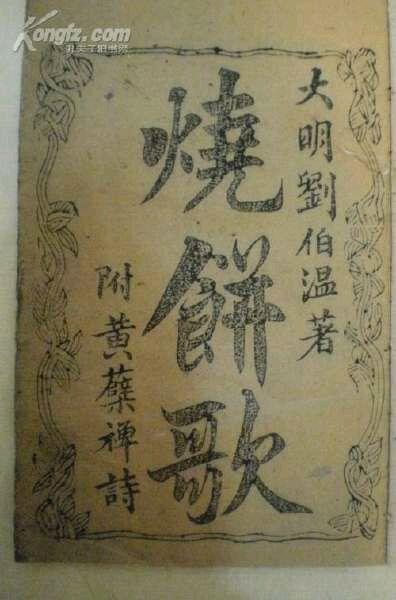 大明劉伯温著
燒餅歌
附黃蘗禪詩
Kongfz.com
孔夫子旧书网